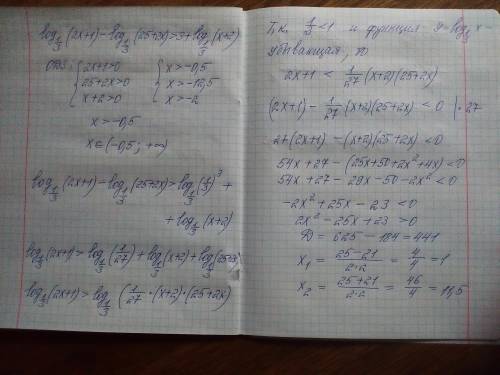 log_{1/3}(2x+1) - log_{1/3}(25+2x) > 3 + log_{1/3}(x+2)
ОВЗ: { 2x+1>0 { x>-0,5
25+2x>0 x>-12,5
x+2>0 x>-2
x>-0,5
x∈(-0,5; +∞)
log_{1/3}(2x+1) - log_{1/3}(25+2x) > log_{1/3}(1/3)³ +
+ log_{1/3}(x+2)
log_{1/3}(2x+1) > log_{1/3}(1/27) + log_{1/3}(x+2) + log_{1/3}(25+2x)
log_{1/3}(2x+1) > log_{1/3}(1/27 · (x+2) · (25+2x)
Т.к. 1/3 < 1 и функция y = log_{1/3} x -
убывающая, то
2x+1 < 1/27 (x+2)(25+2x)
(2x+1) - 1/27 (x+2)(25+2x) < 0 | · 27
27(2x+1) - (x+2)(25+2x) < 0
54x + 27 - (25x+50+2x²+4x) < 0
54x + 27 - 29x - 50 - 2x² < 0
-2x² + 25x - 23 < 0
2x² - 25x + 23 > 0
D = 625 - 184 = 441
x₁ = (25-21)/(2·2) = 4/4 = 1
x₂ = (25+21)/(2·2) = 46/4 = 11,5